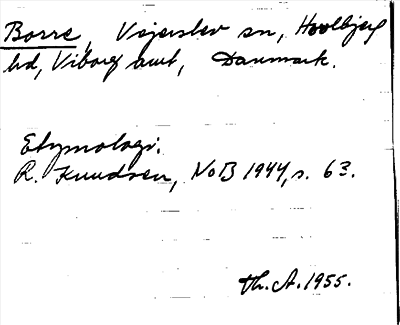 Borre, Vejerslev sn, Hovlbjerg
hd, Viborg amt, Danmark.
Etymologi.
R. Knudsen, NoB 1944, s. 63.
Th. A. 1955.